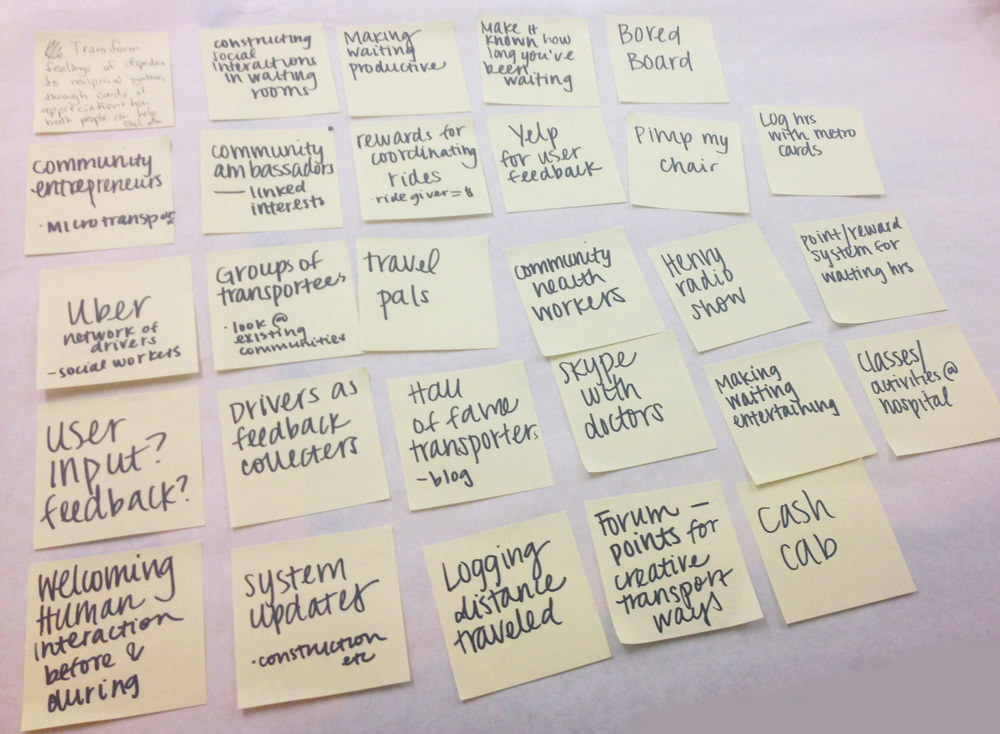 Transform
feelings of
to reciprocal
through cards of
appreciation
both people can help
constructing
social
interactions
in waiting
rooms
Making
waiting
productive
Make it
known how
long you've
been
waiting
Bored
Board
community
entrepreneurs
· Microtranspo
community
ambassadors
— linked
interests
rewards for
coordinating
rides
· ride giver = $
Yelp
for user
feedback
Pimp my
chair
Log hrs
with metro
cards
Uber
network of
drivers
- social workers
Groups of
transportees
· look @
existing
communities
travel
pals
community
health
workers
Henry
radio
show
point/reward
system for
waiting hrs
User
input?
feedback?
Drivers as
feedback
collecters
Hall
of fame
transporters
- blog
Skype
with
doctors
Making
waiting
entertaining
Classes/
activities @
hospital
Welcoming
Human
interaction
before &
during
system
updates
· construction
etc
Logging
distance
traveled
Forum —
points for
creative
transport
ways
Cash
cab